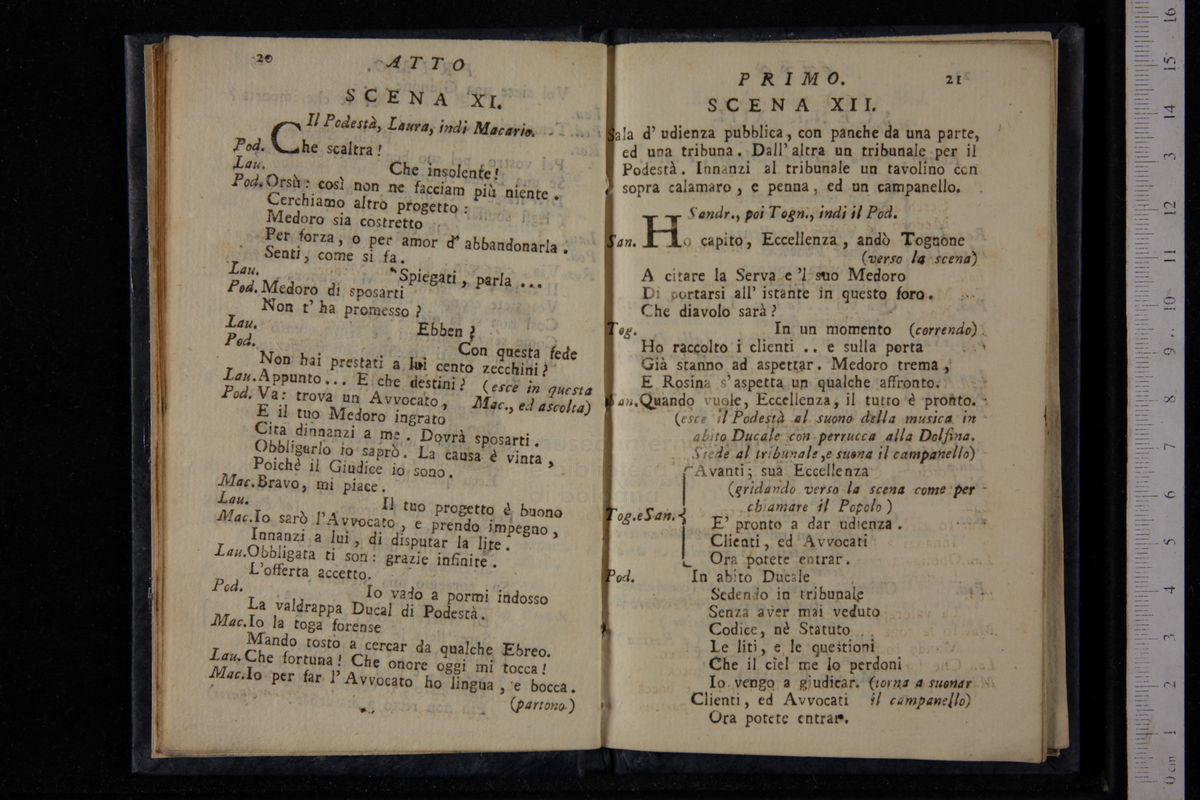 20
ATTO
SCENA XI.
Il Podestà, Laura, indi Macario.
Pod. Che scaltra!
Lau. Che insolente!
Pod. Orsù: così non ne facciam più niente.
Cerchiamo altro progetto:
Medoro sia costretto
Per forza, o per amor d' abbandonarla.
Senti, come si fa.
Lau. Spiegati, parla ...
Pod. Medoro di sposarti
Non t' ha promesso?
Lau. Ebben?
Pod. Con questa fede
Non hai prestati a lui cento zecchini?
Lau. Appunto... E che destini? (esce in questa
Pod. Va: trova un Avvocato, Mac., ed ascolta)
E il tuo Medoro ingrato
Cita dinnanzi a me. Dovrà sposarti.
Obbligarlo io saprò. La causa è vinta,
Poichè il Giudice io sono.
Mac. Bravo, mi piace.
Lau. Il tuo progetto è buono
Mac. Io sarò l'Avvocato, e prendo impegno,
Innanzi a lui, di disputar la lite.
Lau. Obbligata ti son: grazie infinite.
L'offerta accetto.
Pod. Io vado a pormi indosso
La valdrappa Ducal di Podestà.
Mac. Io la toga forense
Mando tosto a cercar da qualche Ebreo.
Lau. Che fortuna! Che onore oggi mi tocca!
Mac. Io per far l'Avvocato ho lingua, e bocca.
(partono.)
PRIMO.
21
SCENA XII.
Sala d' udienza pubblica, con panche da una parte,
ed una tribuna. Dall' altra un tribunale per il
Podestà. Innanzi al tribunale un tavolino con
sopra calamaro, e penna, ed un campanello.
Sandr., poi Togn., indi il Pod.
San. Ho capito, Eccellenza, andò Tognone
(verso la scena)
A citare la Serva e 'l suo Medoro
Di portarsi all' istante in questo foro.
Che diavolo sarà?
Tog. In un momento (correndo)
Ho raccolto i clienti .. e sulla porta
Già stanno ad aspettar. Medoro trema,
E Rosina s'aspetta un qualche affronto.
San. Quando vuole, Eccellenza, il tutto è pronto.
(esce il Podestà al suono della musica in
abito Ducale con perrucca alla Dolfina.
Siede al tribunale, e suona il campanello)
Avanti; sua Eccellenza
(gridando verso la scena come per
chiamare il Popolo)
Tog. e San. E' pronto a dar udienza.
Clienti, ed Avvocati
Ora potete entrar.
Pod. In abito Ducale
Sedendo in tribunale
Senza aver mai veduto
Codice, nè Statuto
Le liti, e le questioni
Che il ciel me lo perdoni
Io vengo a giudicar. (torna a suonar
Clienti, ed Avvocati il campanello)
Ora potete entrar.
0 cm 1 2 3 4 5 6 7 8 9 10 11 12 13 14 15 16